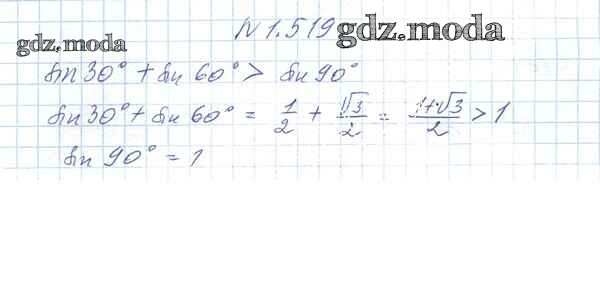 N 1.519 gdz.moda
gdz.moda
sin 30° + sin 60° > sin 90°
sin 30° + sin 60° = 1/2 + √3/2 = 1+√3/2 > 1
sin 90° = 1